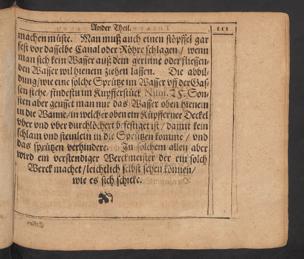 Ander Theil. 111
machen müste. Man muß auch einen stöpffel gar
fest vor dasselbe Canal oder Röhre schlagen / wenn
man sich kein Wasser auß dem gerinne oder fliessen-
den Wasser wil hienein ziehen lassen. Die abbil-
dung / wie eine solche Sprütze im Wasser vff der Gas-
sen stehe / findestu im Kupfferstück Num. Son-
sten aber geusset man nur das Wasser oben hienein
in die Wanne / in welcher oben ein Küpfferner Deckel
vber vnd vber durchlöchert befestiget ist / damit kein
schlam vnd steinlein in die Sprützen komme / vnd
das sprützen verhindere. In solchem allen aber
wird ein verstendiger Werckmeister der ein solch
Werck machet / leichtlich selbst sehen können /
wie es sich schicke.